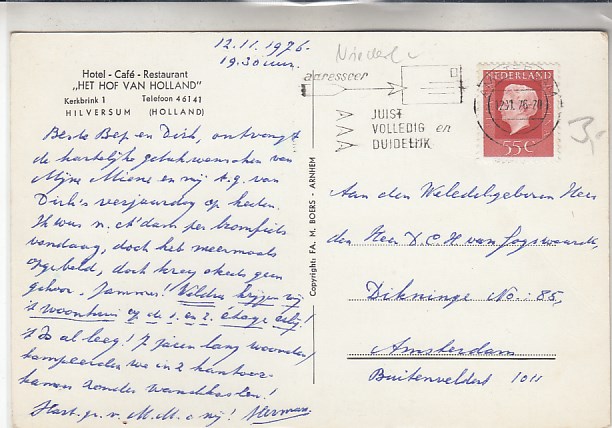 12.11.1976.
19.30 uur.
Hotel - Café - Restaurant
„HET HOF VAN HOLLAND"
Kerkbrink 1 Telefoon 46141
HILVERSUM (HOLLAND)
Beste Bep en Dirk, ontvangt
de hartelijke gelukwenschen van
Mijne Miene en mij t.g. van
Dirk's verjaardag op heden.
Ik was n. A'dam per bromfiets
vandaag, doch heb meermaals
opgebeld, doch kreeg steeds geen
gehoor. Jammer! Wilden krijgen wij
't woonhuis op de 1. en 2. etage
't Is al leeg! 7 jaren lang woonden/
kampeerden we in 2 kantoor-
kamers zonder wandkasten!
Hart. gr. v. M.M. e mij! Herman
Copyright: FA. M. BOERS - ARNHEM
adresseer
JUIST
VOLLEDIG en
DUIDELIJK
NEDERLAND
12.XI.76-20
55c
3,-
Aan den Weledelgeboren Heer
den Heer D.C.H. van
Dikninge No: 85,
Amsterdam
Buitenveldert 1011